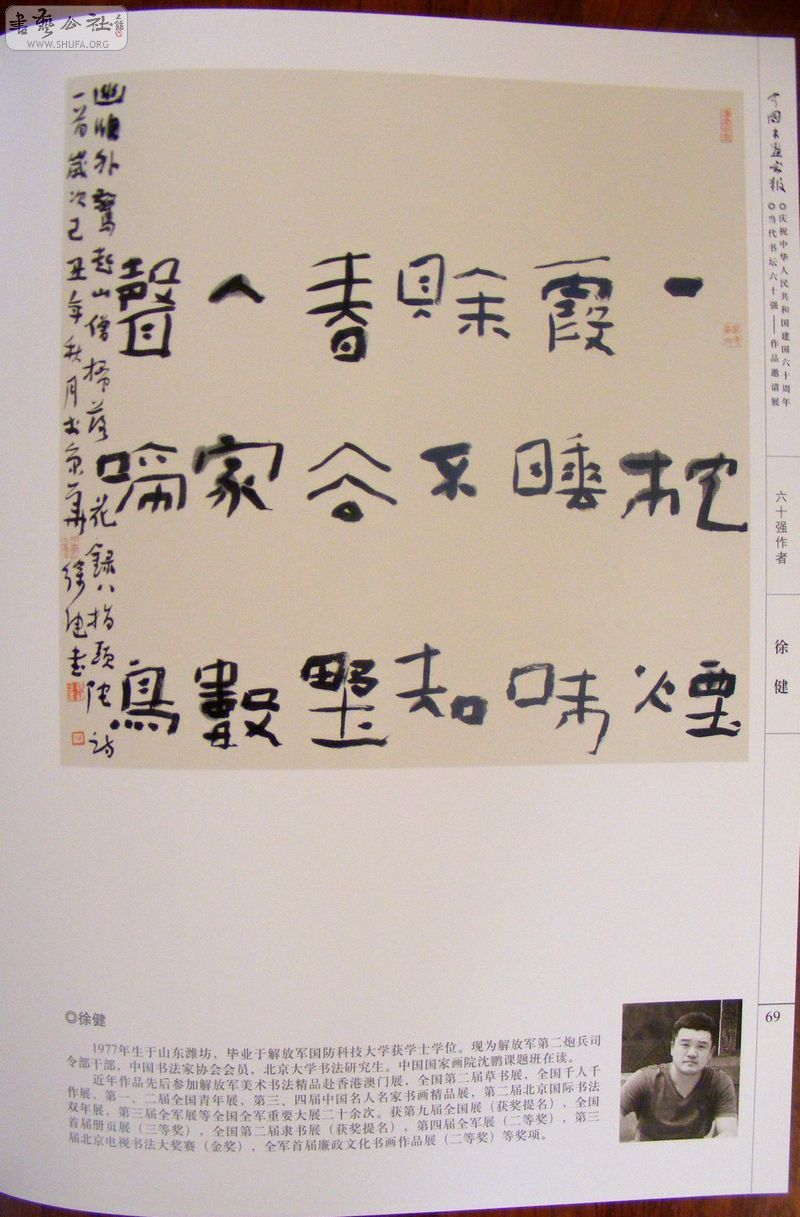 書藝公社
WWW.SHUFA.ORG
中国书画家报
◎庆祝中华人民共和国建国六十周年
◎当代书坛六十强——作品邀请展
六十强作者
徐健
一枕煙
霞睡味
賒不知
春谷野
人家數
聲啼鳥
幽牕外驚起山僧掃落花錄八指頭陀詩
一首歲次己丑年秋月於京華徐健書
69
◎徐健
1977年生于山东潍坊、毕业于解放军国防科技大学获学士学位。现为解放军第二炮兵司
令部干部，中国书法家协会会员，北京大学书法研究生。中国国家画院沈鹏课题班在读。
近年作品先后参加解放军美术书法精品赴香港澳门展，全国第二届草书展，全国千人千
作展，第一、二届全国青年展，第三、四届中国名人名家书画精品展，第二届北京国际书法
双年展，第三届全军展等全国全军重要大展二十余次。获第九届全国展（获奖提名），全国
首届册页展（三等奖），全国第二届隶书展（获奖提名），第四届全军展（二等奖），第三
届北京电视书法大奖赛（金奖），全军首届廉政文化书画作品展（二等奖）等奖项。